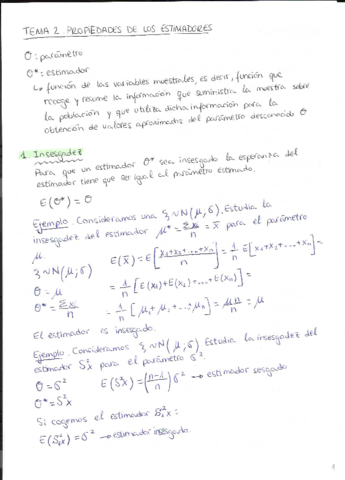 TEMA 2. PROPIEDADES DE LOS ESTIMADORES
θ: parámetro
θ*: estimador
↳ función de las variables muestrales, es decir, función que
recoge y resume la información que suministra la muestra sobre
la población y que utiliza dicha información para la
obtención de valores aproximados del parámetro desconocido θ
1. Insesgadez
Para que un estimador θ* sea insesgado la esperanza del
estimador tiene que ser igual al parámetro estimado.
E(θ*) = θ
Ejemplo. Consideramos una ξ ~ N(μ, σ). Estudia la
insesgadez del estimador μ* = Σxi/n = x̄ para el parámetro
μ.
ξ ~ N(μ, σ)
θ = μ
θ* = Σxi/n
E(x̄) = E[(x1+x2+...+xn)/n] = 1/n E[x1+x2+...+xn] =
= 1/n [E(x1)+E(x2)+...+E(xn)] =
= 1/n [μ1+μ2+...+μn] = μn/n = μ
El estimador es insesgado.
Ejemplo. Consideramos ξ ~ N(μ, σ) Estudia la insesgadez del
estimador S²x para el parámetro σ².
θ = σ²
θ* = S²x
E(S²x) = (n-1/n) σ² → estimador sesgado
Si cogemos el estimador S²x:
E(S²x) = σ² → estimador insesgado.
1